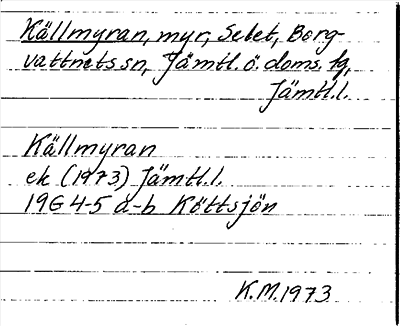 Källmyran, myr, Selet, Borg-
vattnets sn, Jämtl. ö. doms. tg,
Jämtl.l.
Källmyran
ek (1973) Jämtl.l.
19G 4-5 a-b Köttsjön
K.M. 1973